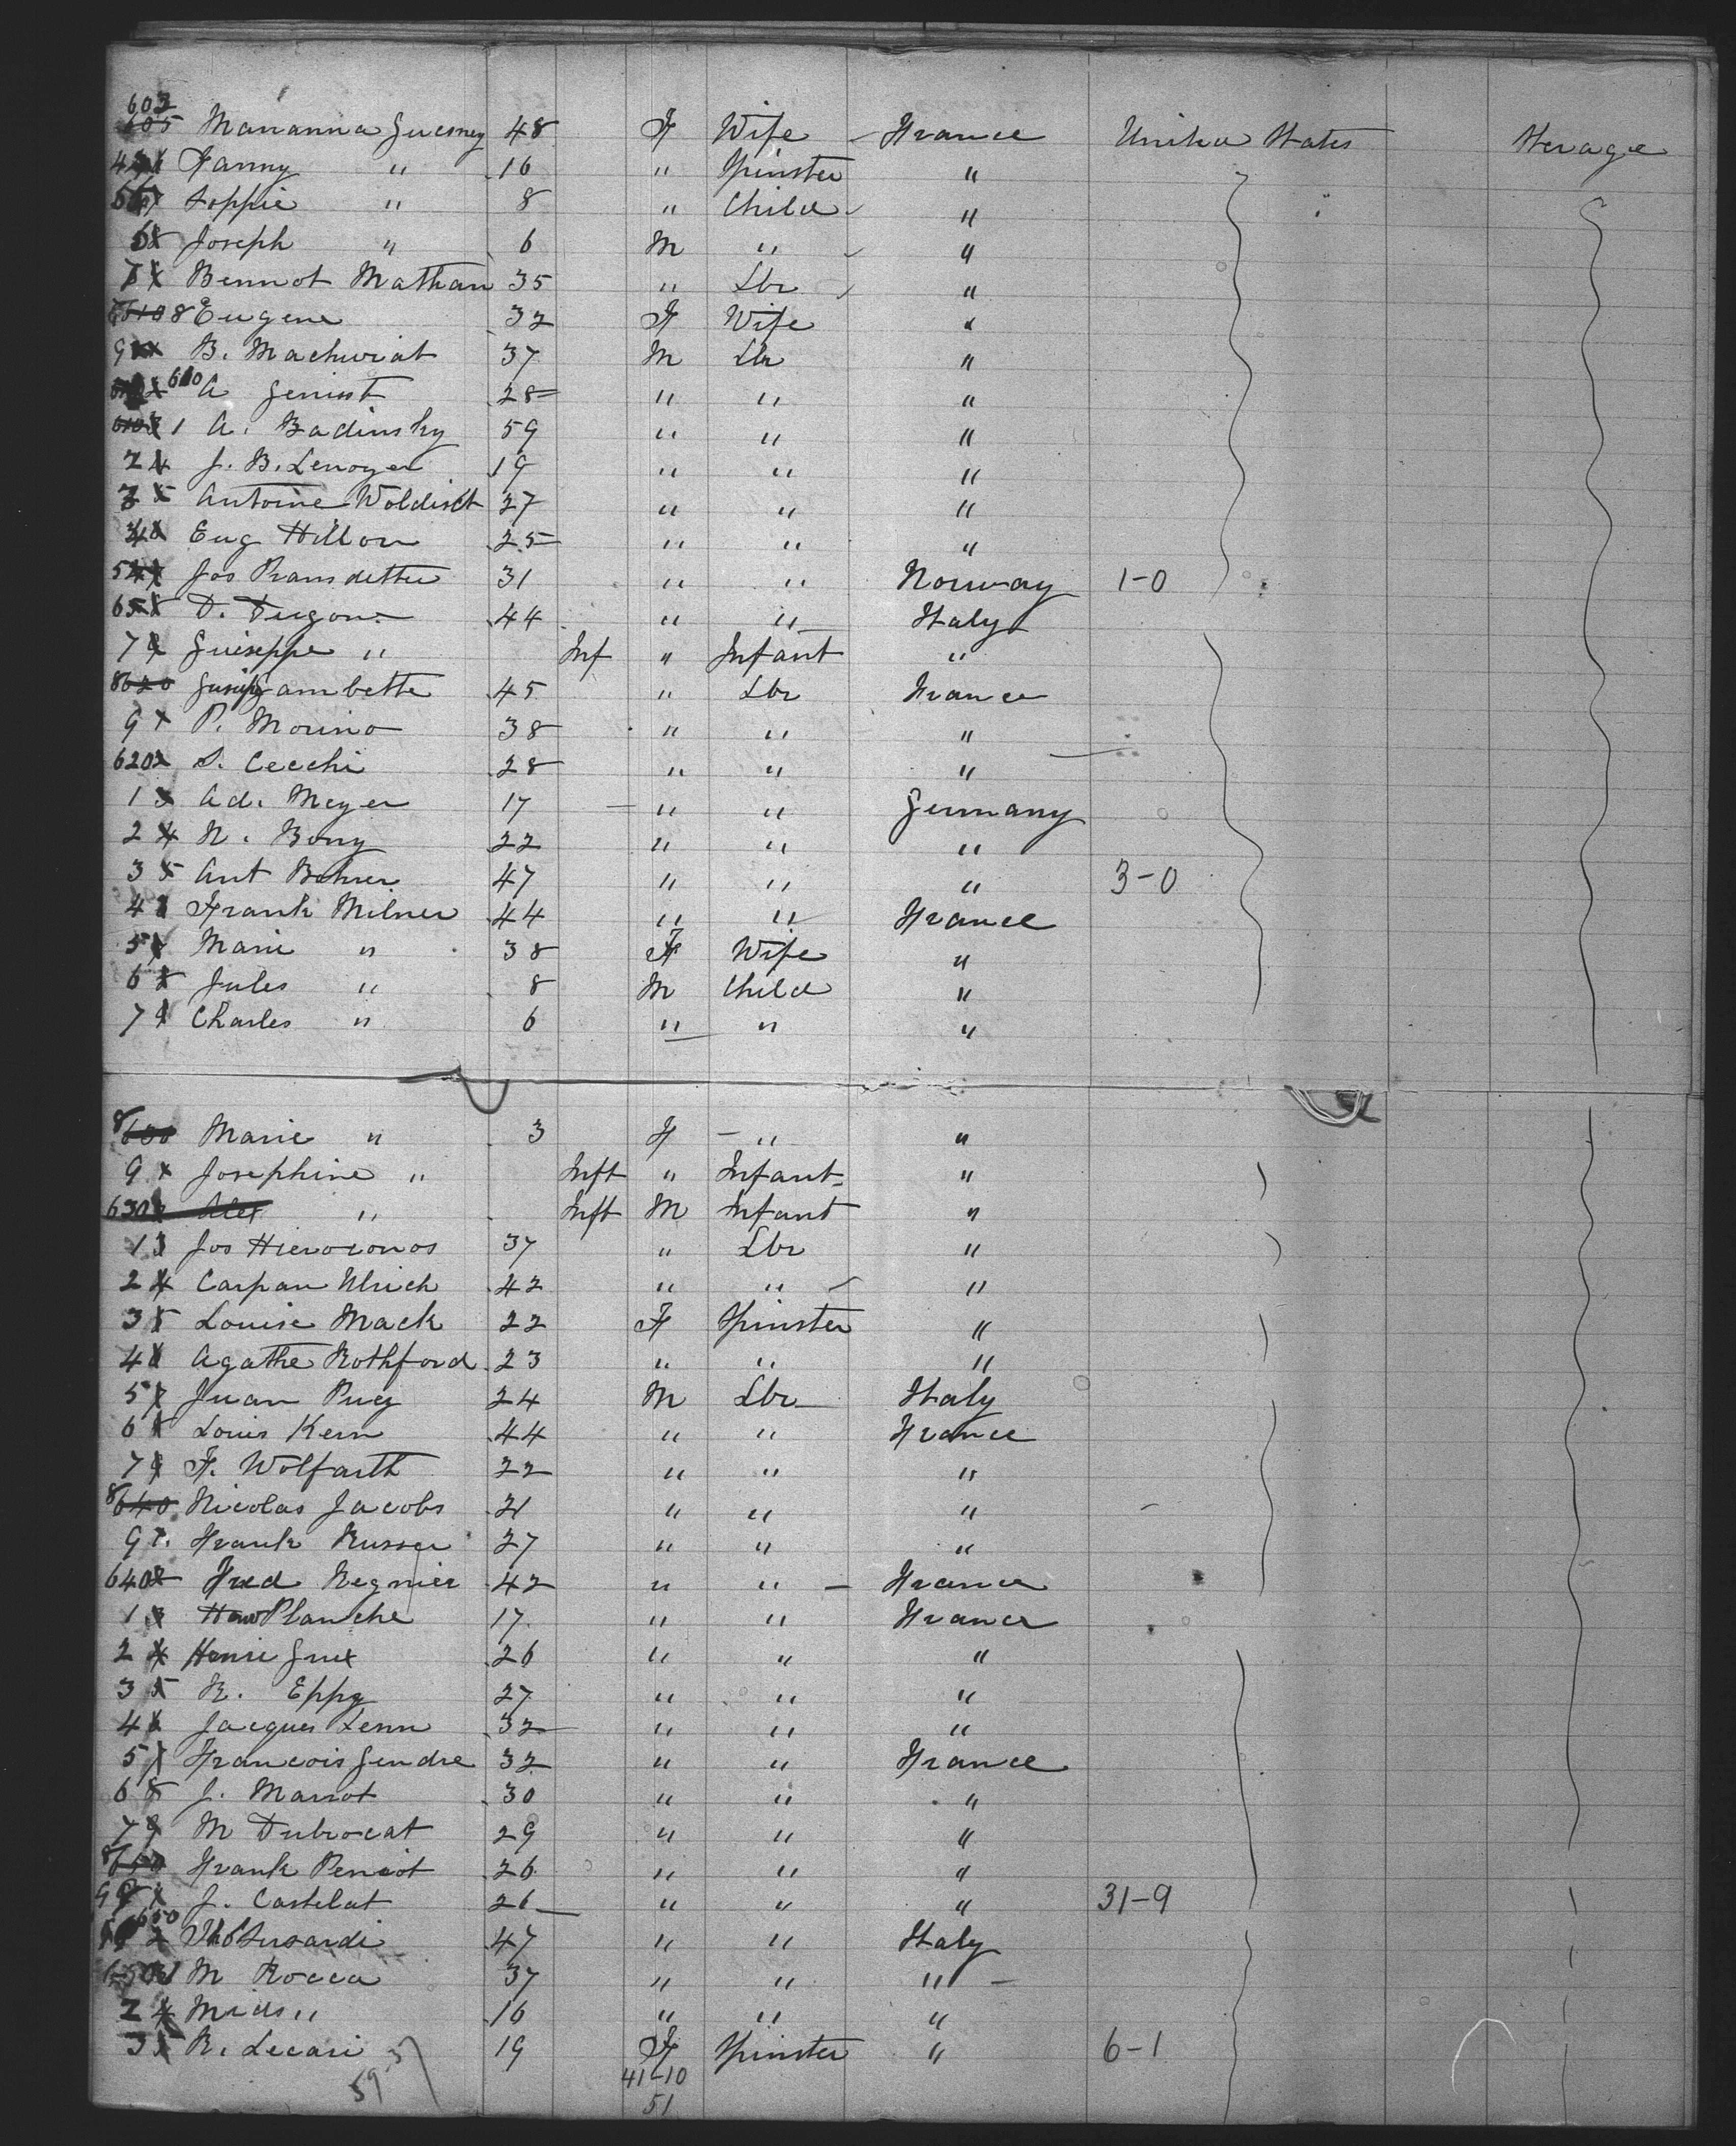 603
605 Mananna Guesney 48 F Wife France United States Sterage
Fanny " 16 " Spinster "
Soppie " 8 " Child "
Joseph " 6 M " "
Bennot Mathan 35 " Lbr "
8 Eugene 32 F Wife "
9 B. Machuriat 37 M Lbr "
610 A Genisst 28 " " "
1 A. Badinsky 59 " " "
2 J. B. Lenoyer 19 " " "
3 Antoine Woldisct 27 " " "
4 Eug Hillon 25 " " "
5 Jos Pransdetter 31 " " Norway 1-0
6 D. Dugon 44 " " Italy
7 Guiseppe " Inf " Infant "
8 620 Gambette 45 " Lbr France
9 P. Morino 38 " " "
620 S. Cecchi 28 " " "
1 Ad. Meyer 17 " " Germany
2 4 N. Bony 22 " " "
3 5 Ant Bohrer 47 " " " 3-0
4 Frank Milner 44 " " France
5 Marie " 38 F Wife "
6 8 Jules " 8 M Child "
7 9 Charles " 6 " " "
8 630 Marie " 3 F " "
9 Josephine " Inft " Infant "
630 Alex " Inft M Infant "
1 3 Jos Hieroronos 37 " Lbr "
2 4 Carpan Ulrich 42 " " "
3 5 Louise Mack 22 F Spinster "
4 Agathe Rothford 23 " " "
5 7 Juan Puey 24 M Lbr Italy
6 8 Louis Kern 44 " " France
7 9 F. Wolfarth 22 " " "
8 640 Nicolas Jacobs 21 " " "
9 Frank Russer 27 " " "
640 Fred Regnier 42 " " France
1 3 Planche 17 " " France
2 4 Henri Grux 26 " " "
3 5 R. Eppy 27 " " "
4 Jacques Lenn 32 " " "
5 7 Francois Gendre 32 " " France
6 8 J. Marrot 30 " " "
7 9 M Dubrocat 29 " " "
8 650 Frank Penriot 26 " " "
9 J. Castelat 26 " " " 31-9
650 2 47 " " Italy
M Rocca 37 " " "
2 4 " 16 " " "
3 5 R. Lecari 19 F Spinster " 6-1
59 41-10
51